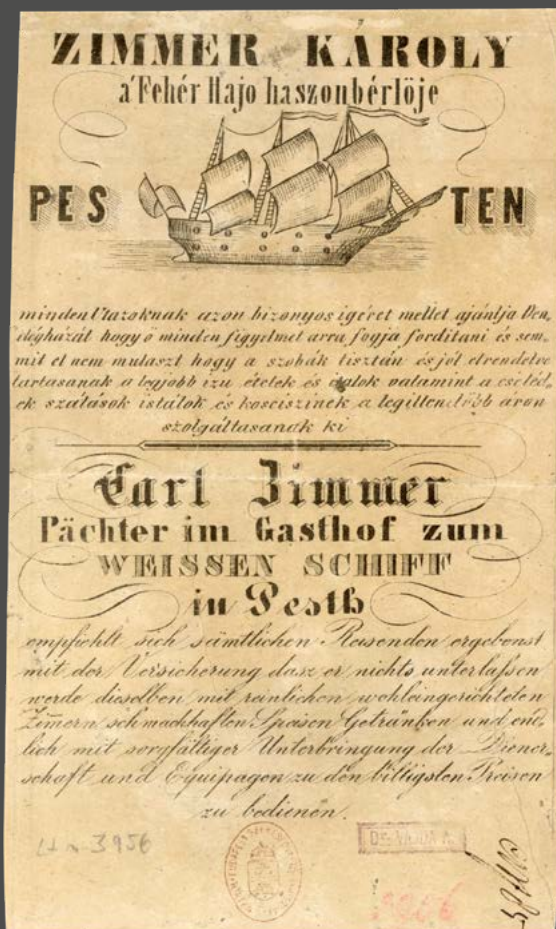 ZIMMER KÁROLY
a' Fehér Hajo haszonbérlöje
PESTEN
minden Utazoknak azon bizonyos igéret mellet ajánlja Ven„
déghazát hogy ö minden figyelmet arra fogja forditani és sem„
mit el nem mulaszt hogy a szobák tisztán és jól elrendelve
tartasanak a legjobb izu étetek és italok valamint a cseléd„
ek szalások istalok és kosciszinek a legillendöbb áron
szolgáltasanak ki
Carl Zimmer
Pächter im Gasthof zum
WEISSEN SCHIFF
in Pesth
empfiehlt sich sämtlichen Reisenden ergebenst
mit der Versicherung dasz er nichts unterlassen
werde dieselben mit reinlichen wohleingerichteten
Zimern schmackhaften Speisen Getränken und end„
lich mit sorgfältiger Unterbringung der Diener„
schaft und Equipagen zu den billigsten Preisen
zu bedienen.
3956
DR. VAJDA A.